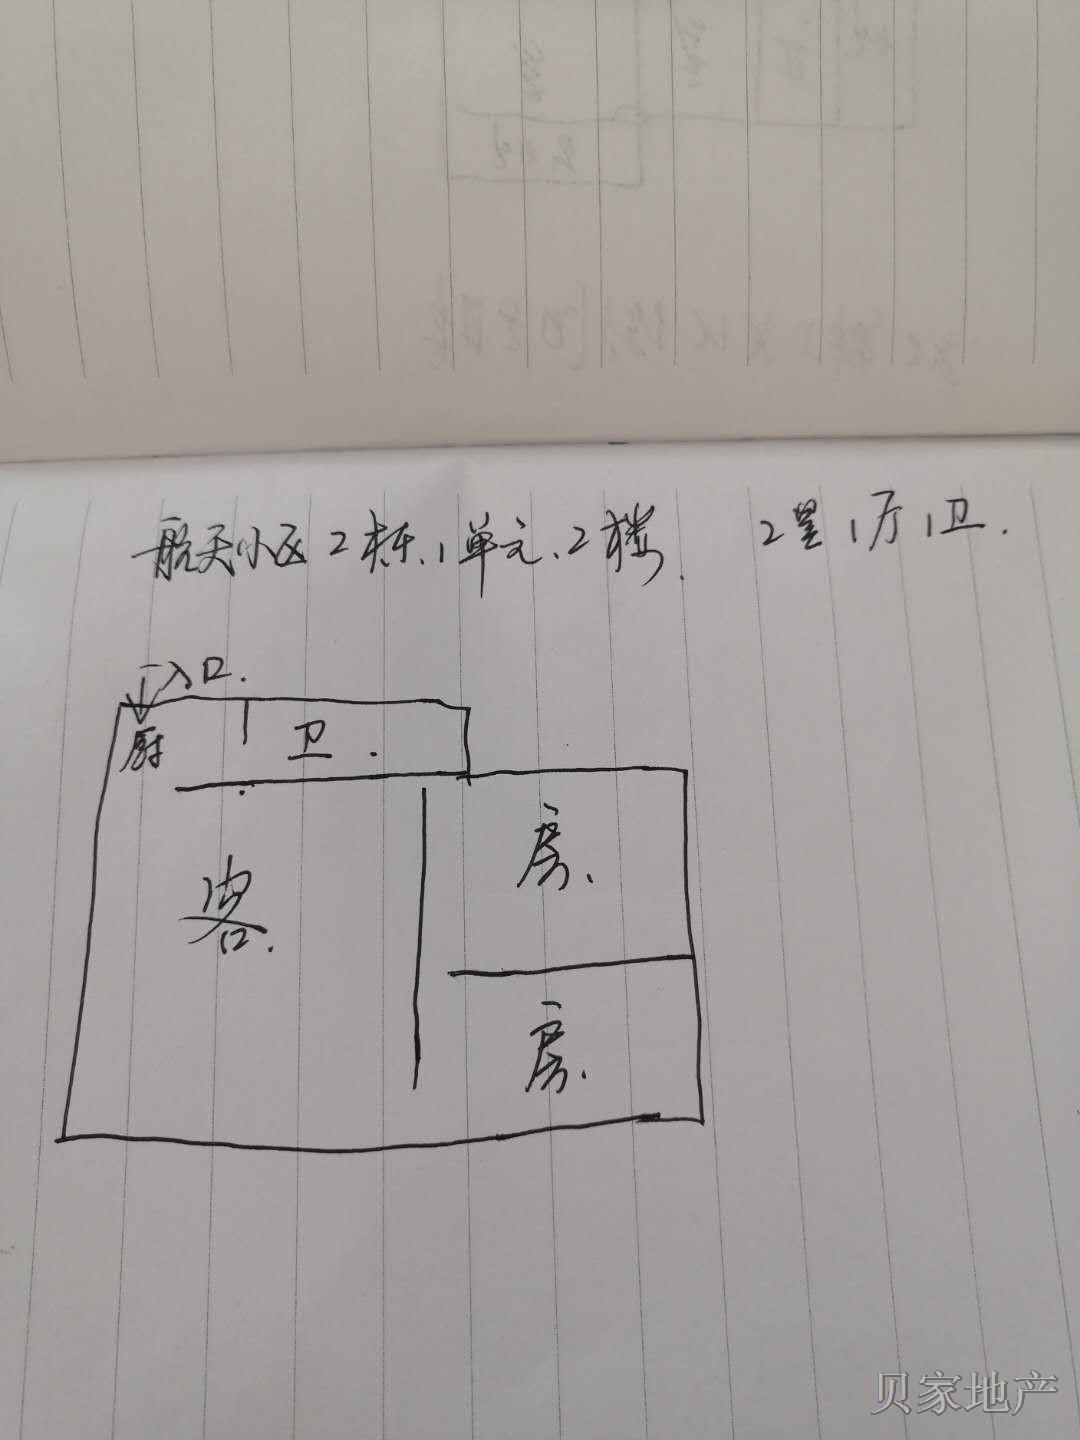 航天小区2栋、1单元、2楼. 2室1厅1卫.
入口.
厨 卫.
房.
客.
房.
贝家地产